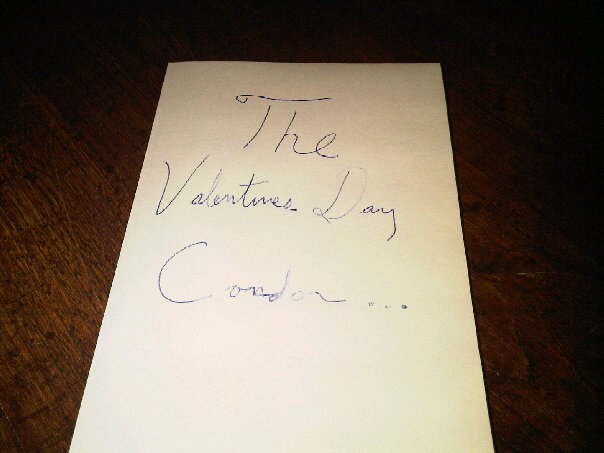 The
Valentines Day
Condor ...